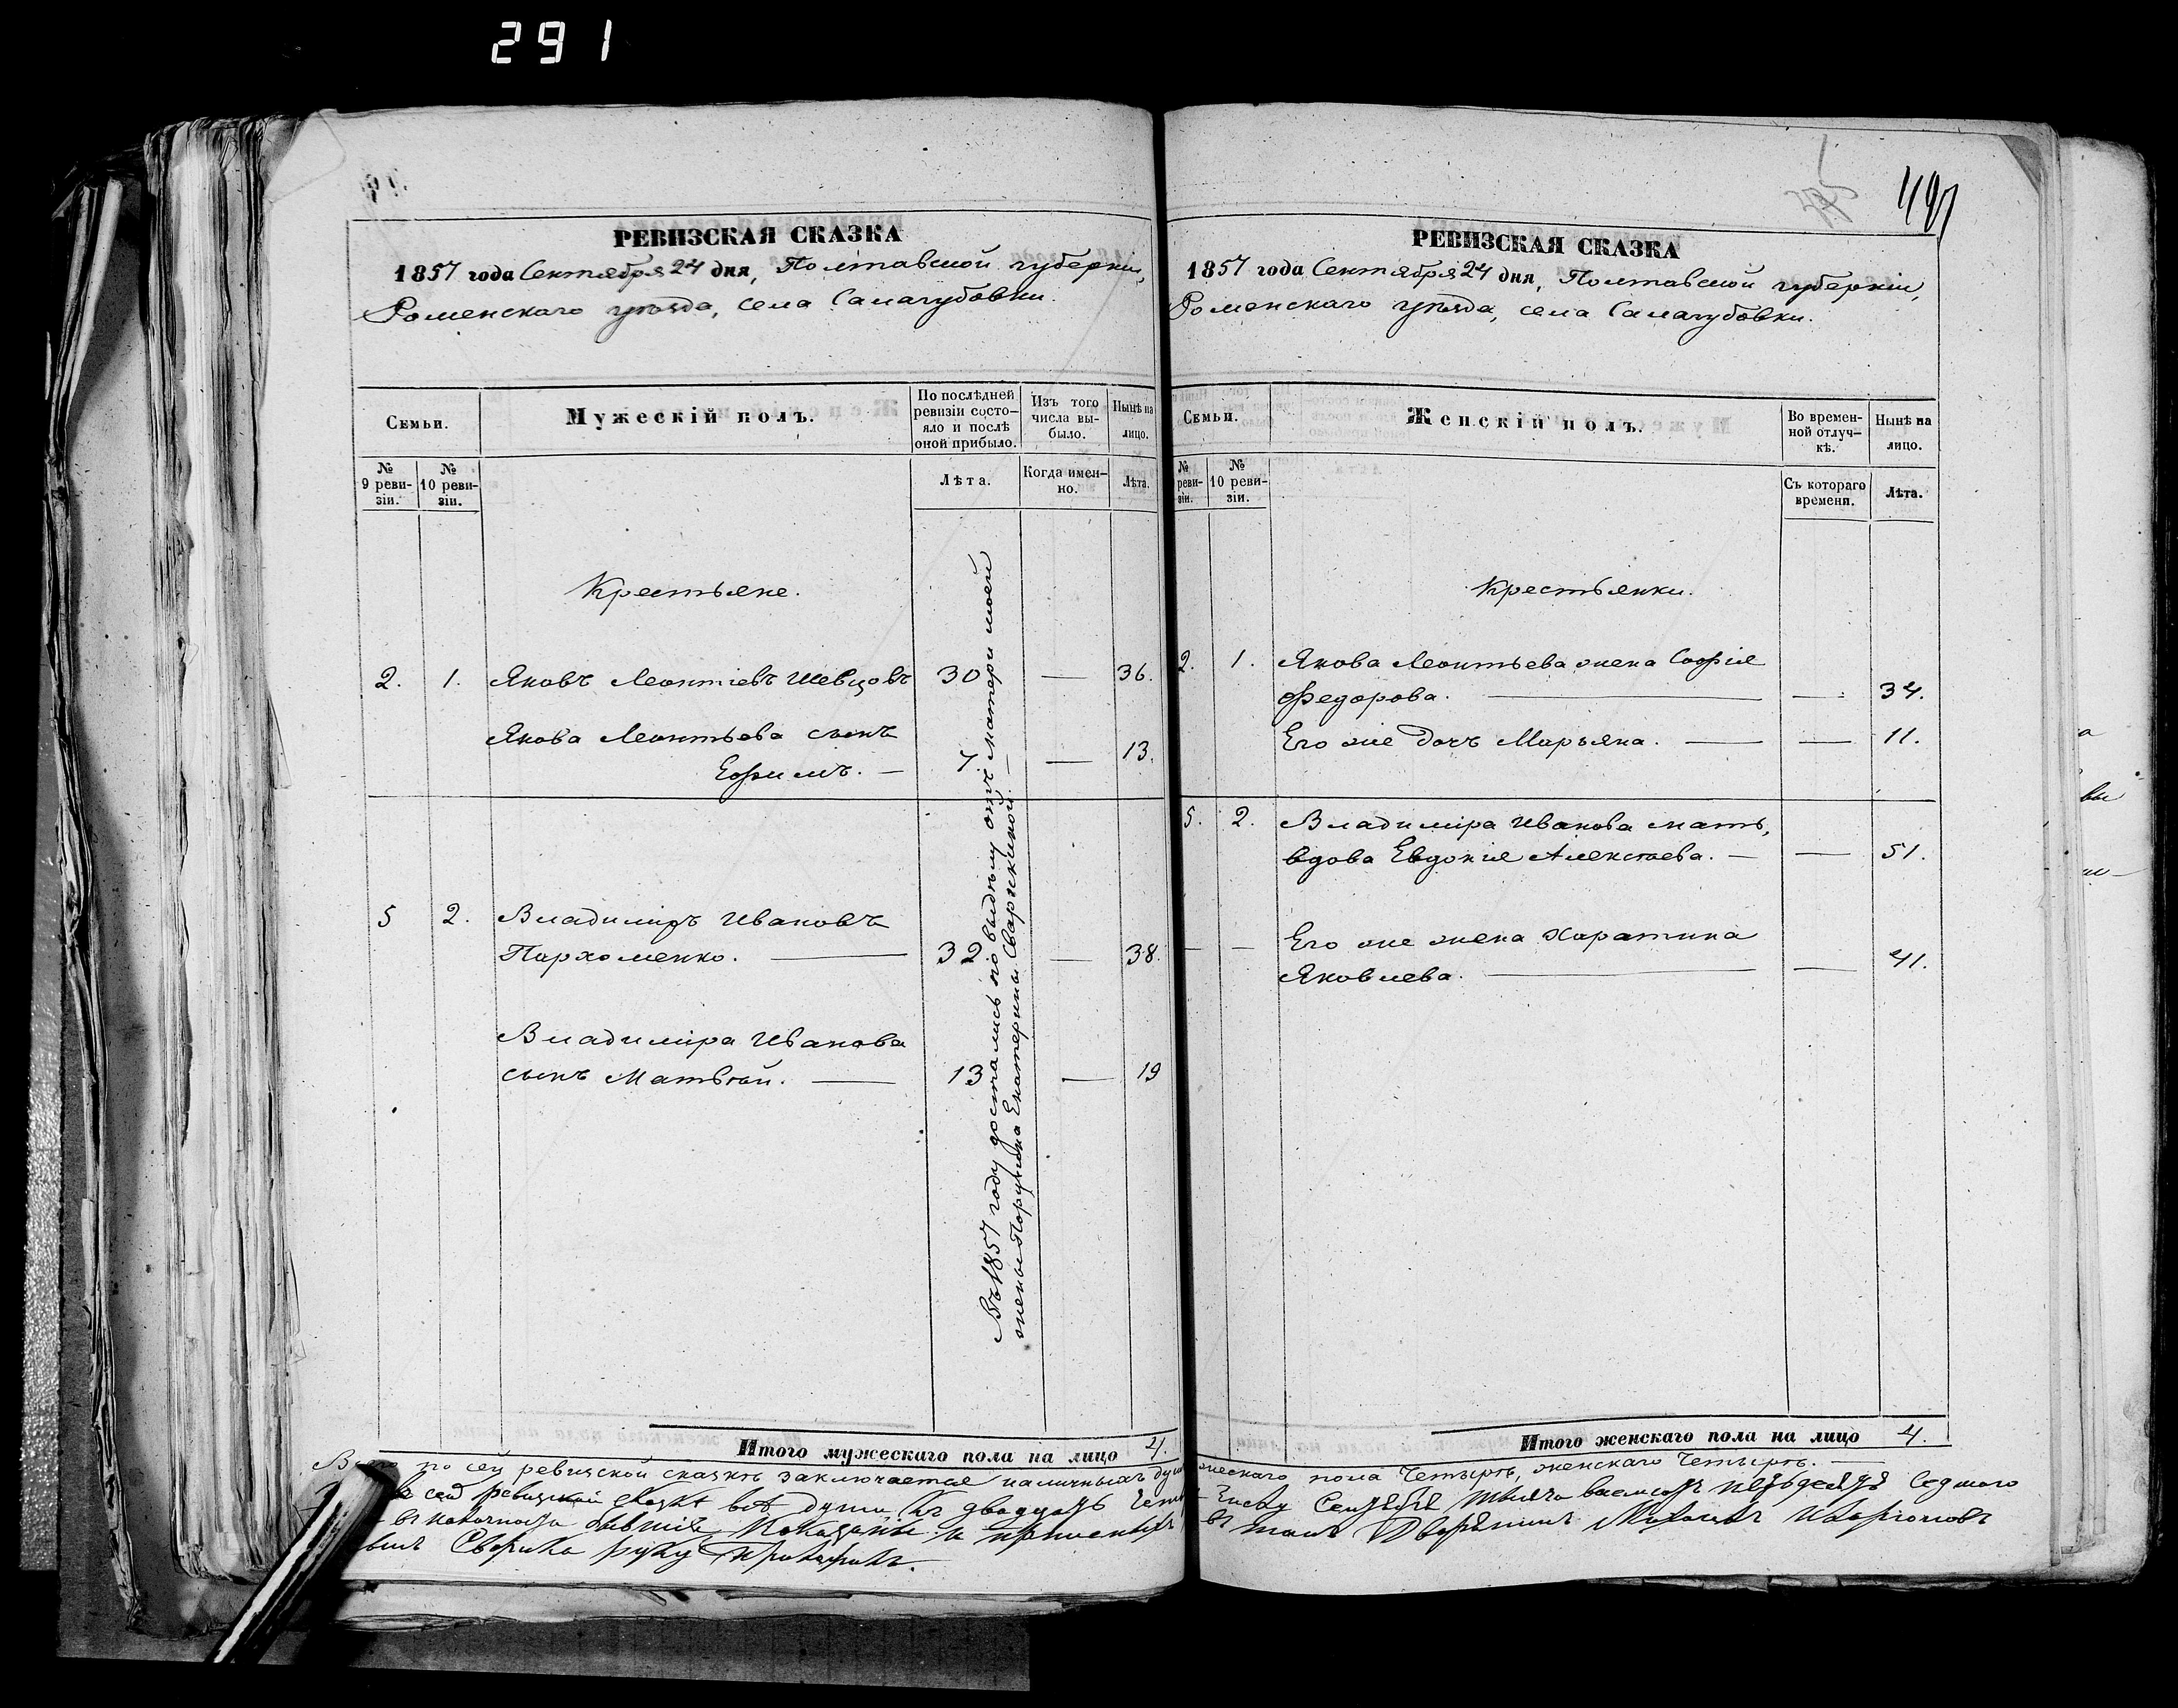 291
РЕВИЗСКАЯ СКАЗКА
1857 года Сентября 24 дня, Полтавской губерніи,
Роменскаго уѣзда, села Салагубовки.
Семьи.
Мужескій полъ.
По послѣдней
ревизіи состо-
яло и послѣ
оной прибыло.
Изъ того
числа вы-
было.
Нынѣ на
лицо.
№
9 реви-
зіи.
№
10 реви-
зіи.
Лѣта.
Когда имен-
но.
Лѣта.
Крестьяне.
2. 1. Яковъ Леонтіевъ Шевцовъ 30 — 36.
Якова Леонтьева сынъ
Ефимъ. — 7 — 13.
5 2. Владиміръ Ивановъ
Пархоменко. — 32 — 38.
Владиміра Иванова
сынъ Матвѣй. — 13 — 19
Въ 1857 году достались по выдѣлу отъ матери моей
жены Поручика Екатерины Сваржинской. —
Итого мужескаго пола на лицо 4.
497
РЕВИЗСКАЯ СКАЗКА
1857 года Сентября 24 дня, Полтавской губерніи,
Роменскаго уѣзда, села Салагубовки.
Семьи.
Женскій полъ.
Во времен-
ной отлуч-
кѣ.
Нынѣ на
лицо.
№
реви-
зіи.
№
10 реви-
зіи.
Съ котораго
времени.
Лѣта.
Крестьянки.
2. 1. Якова Леонтьева жена Софія
Федорова. — — 34.
Его же дочь Марьяна. — — 11.
5. 2. Владиміра Иванова мать,
вдова Евдокія Алексѣева. — — 51.
— — Его же жена Харатина
Яковлева. — — 41.
Итого женскаго пола на лицо 4.
по сей ревизской сказкѣ заключается наличныхъ душъ мужескаго пола Четыре, женскаго Четыре. —
сей ревизской сказкѣ всѣ души къ двадцать Числу Сентября тысяча восемсотъ пѣтьдесятъ Седмого
въ наличности бывшіе показаны и прописныхъ нѣтъ въ томъ Дворянинъ Иларіоновъ
Сверика руку приложилъ.